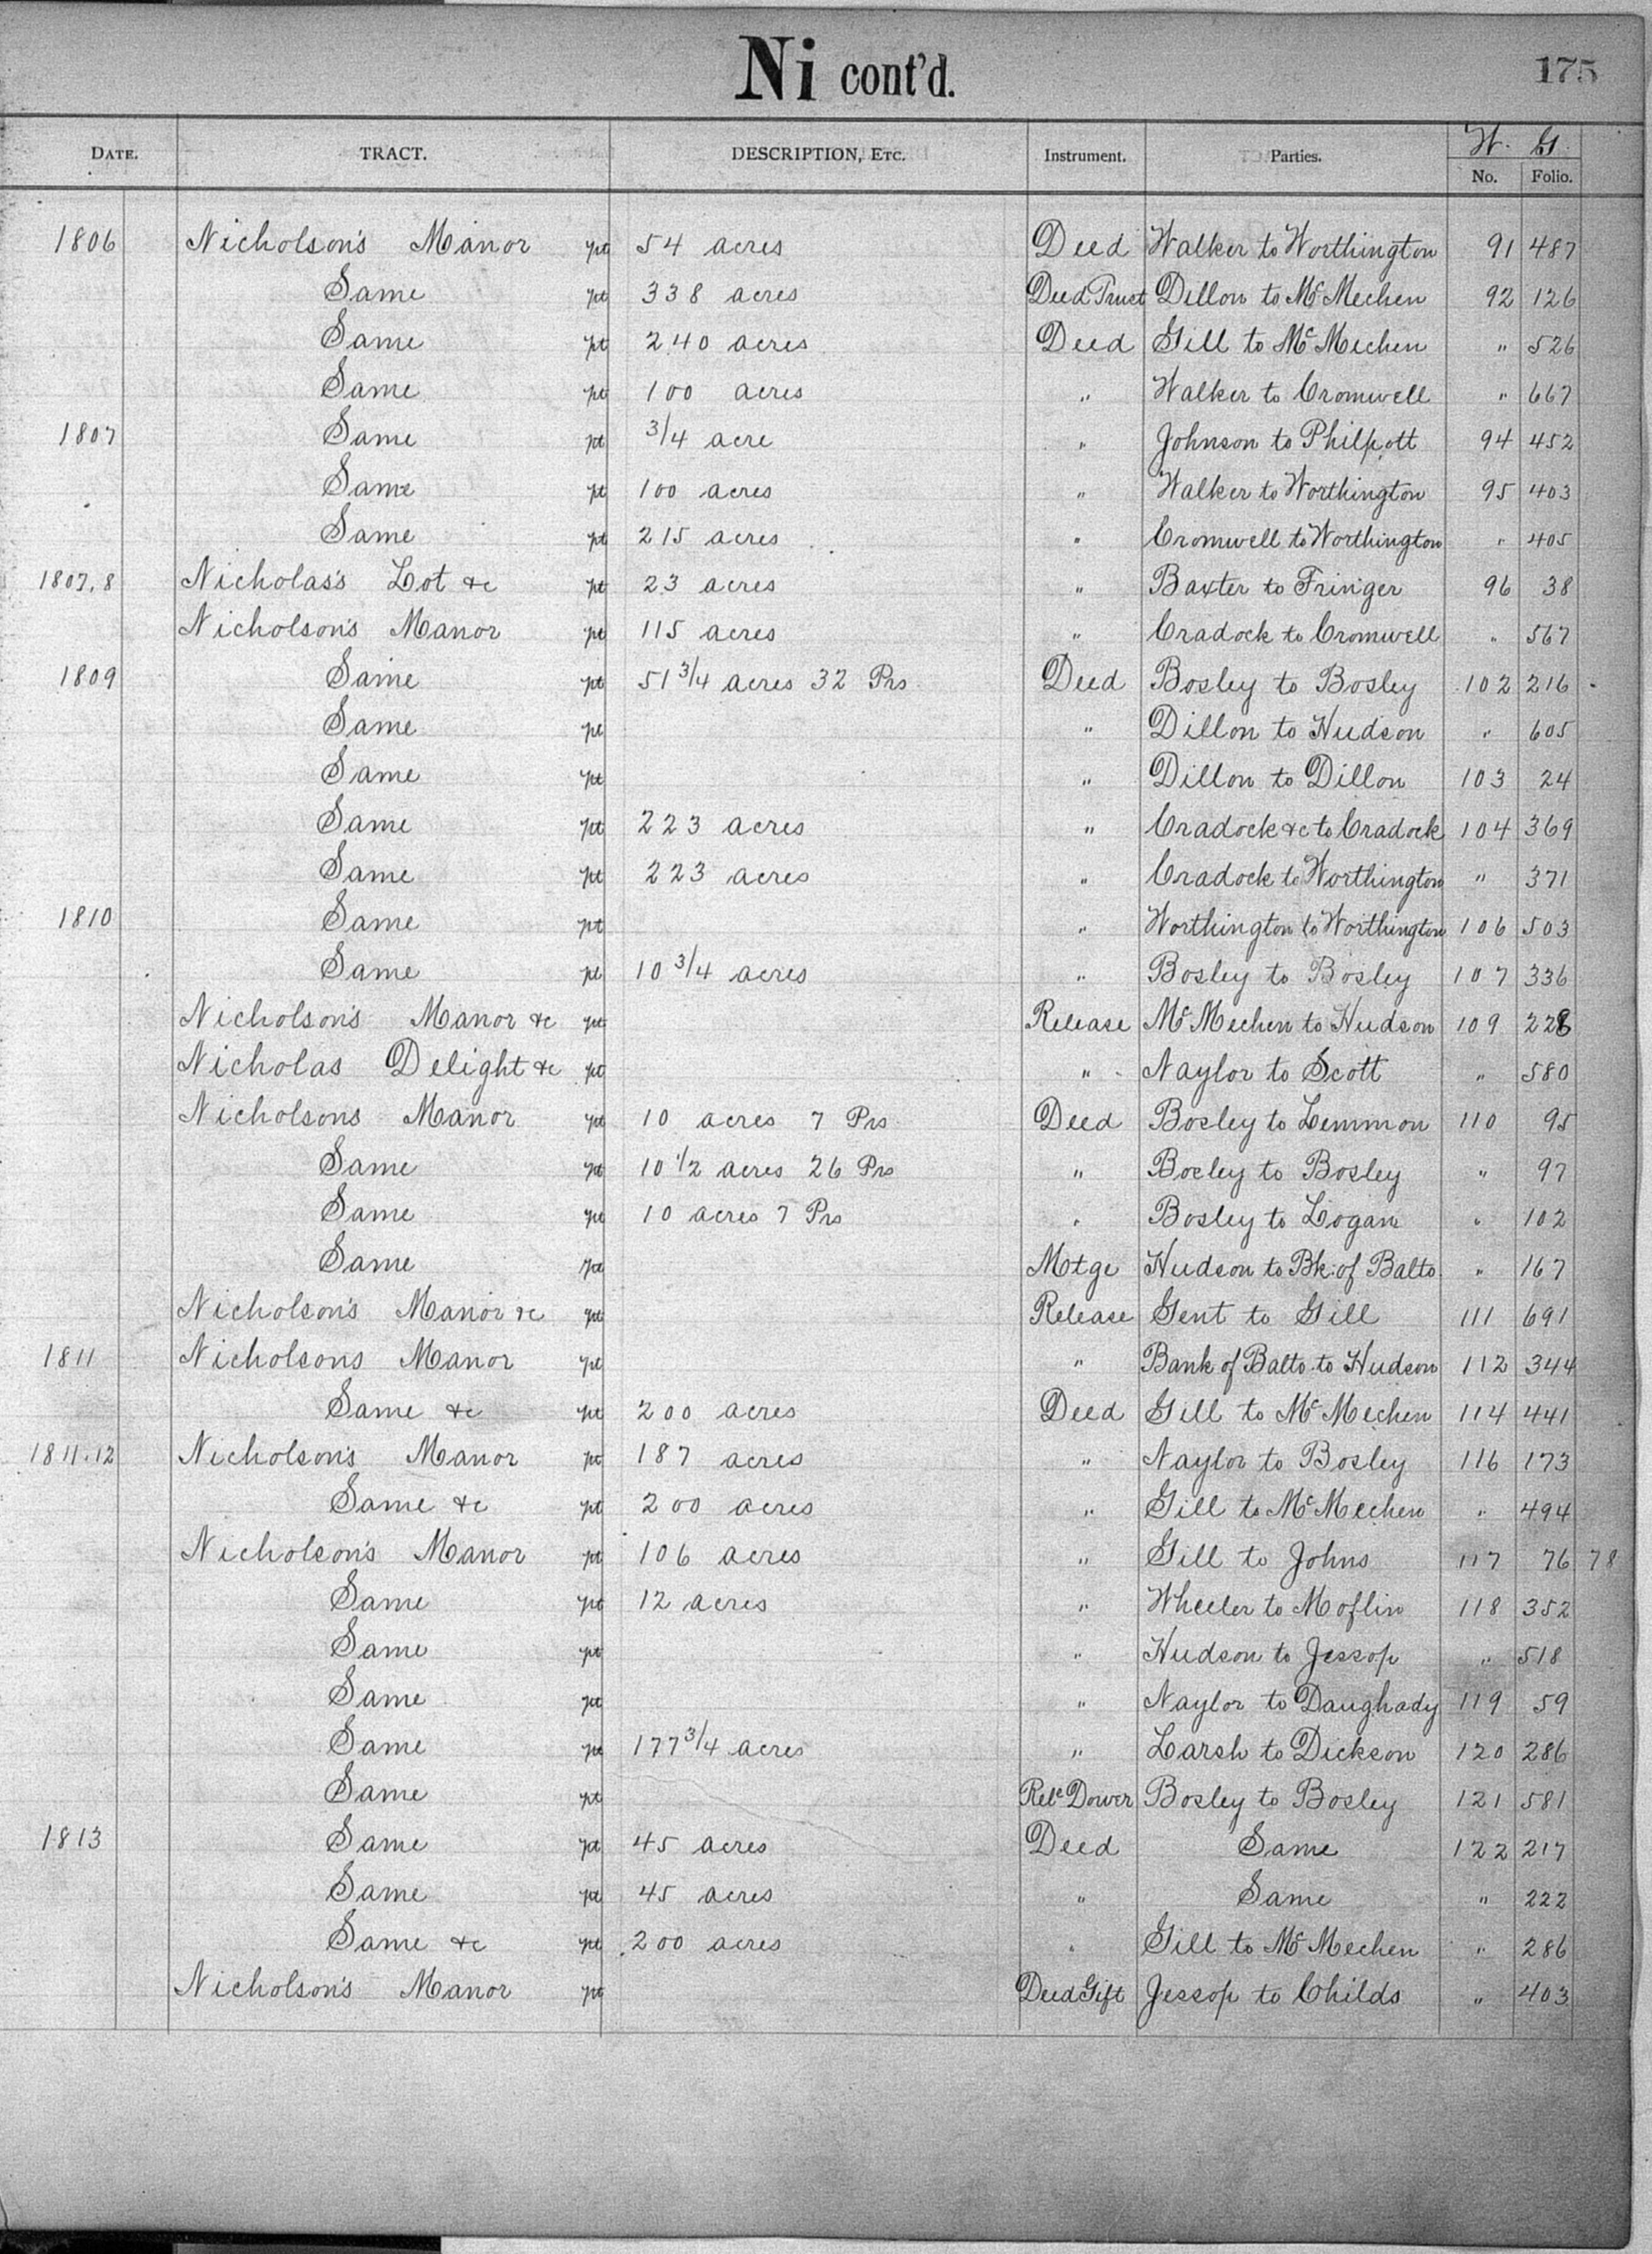 Ni cont'd.
175
DATE. TRACT. DESCRIPTION, ETC. Instrument. Parties. W. G.
No. Folio.
1806 Nicholson's Manor pt 54 acres Deed Walker to Worthington 91 487
Same pt 338 acres Deed Trust Dillon to McMechen 92 126
Same pt 240 acres Deed Gill to McMechen " 526
Same pt 100 acres " Walker to Cromwell " 667
1807 Same pt 3/4 acre " Johnson to Philpott 94 452
Same pt 100 acres " Walker to Worthington 95 403
Same pt 215 acres " Cromwell to Worthington " 405
1807.8 Nicholas's Lot &c pt 23 acres " Baxter to Fringer 96 38
Nicholson's Manor pt 115 acres " Cradock to Cromwell " 567
1809 Same pt 51 3/4 acres 32 Prs Deed Bosley to Bosley 102 216
Same pt " Dillon to Hudson " 605
Same pt " Dillon to Dillon 103 24
Same pt 223 acres " Cradock &c to Cradock 104 369
Same pt 223 acres " Cradock to Worthington " 371
1810 Same pt " Worthington to Worthington 106 503
Same pt 10 3/4 acres " Bosley to Bosley 107 336
Nicholson's Manor &c pt Release McMechen to Hudson 109 228
Nicholas Delight &c pt " Naylor to Scott " 580
Nicholsons Manor pt 10 acres 7 Prs Deed Bosley to Lemmon 110 95
Same pt 10 1/2 acres 26 Prs " Bosley to Bosley " 97
Same pt 10 acres 7 Prs " Bosley to Logan " 102
Same pt Motge Hudson to Bk: of Balto " 167
Nicholson's Manor &c pt Release Gent to Gill 111 691
1811 Nicholsons Manor pt " Bank of Balto. to Hudson 112 344
Same &c pt 200 acres Deed Gill to McMechen 114 441
1811.12 Nicholson's Manor pt 187 acres " Naylor to Bosley 116 173
Same &c pt 200 acres " Gill to McMechen " 494
Nicholson's Manor pt 106 acres " Gill to Johns 117 76 78
Same pt 12 acres " Wheeler to Moflin 118 352
Same pt " Hudson to Jessop " 518
Same pt " Naylor to Daughady 119 59
Same pt 177 3/4 acres " Larsh to Dickson 120 286
Same pt Rele Dower Bosley to Bosley 121 581
1813 Same pt 45 acres Deed Same 122 217
Same pt 45 acres " Same " 222
Same &c pt 200 acres " Gill to McMechen " 286
Nicholson's Manor pt Deed Gift Jessop to Childs " 403